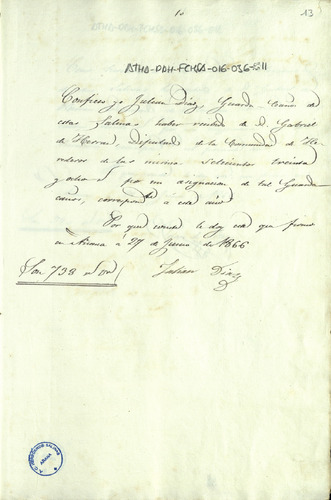 13
ATHA-DAH-FCHSA-016-036-011
Confieso yo Julian Diaz, Guarda Caños de
estas Salinas haber recibido de D. Gabriel
de Herran, Diputado de la Comunidad de He-
rederos de las mismas setecientos treinta
y ocho rs por mi asignacion de tal Guarda
caños, correspondte á este año
Y para que conste le doy este que firmo
en Añana á 29 de Junio de 1866
Son 738 rs von
Julian Diaz